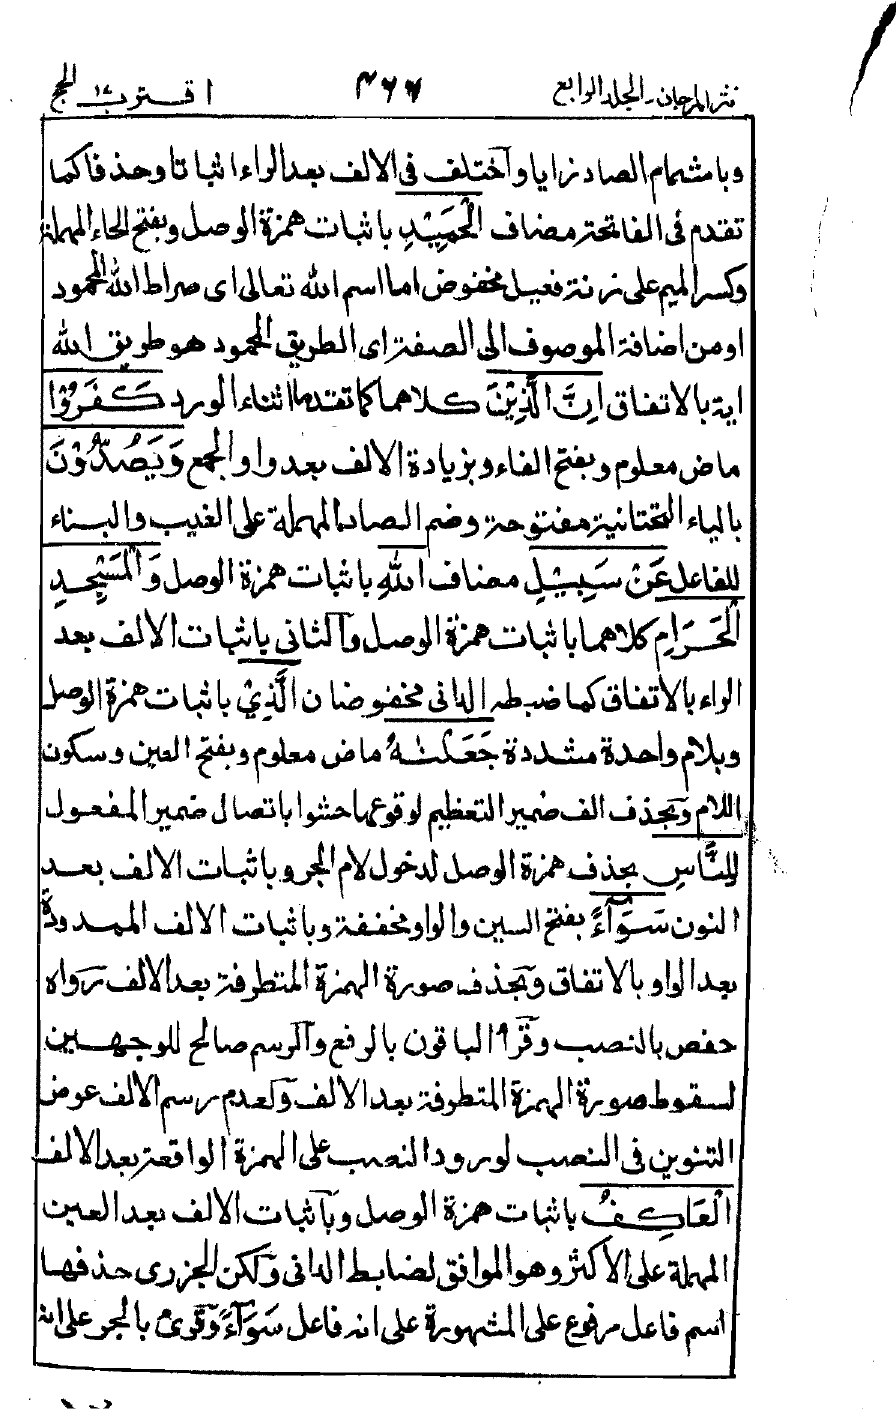 نثر المرجان ـ الجلد الرابع ٤٦٦ اقترب ١٧ الحج
وباشمام الصاد زايا واختلف فى الالف بعد الراء اثباتا وحذفا كما
تقدم فى الفاتحة مضاف الْحَمِيْدِ باثبات همزة الوصل وبفتح الحاء المهملة
وكسر الميم على زنة فعيل مخفوض اما اسم الله تعالى اى صراط الله المحمود
او من اضافة الموصوف الى الصفة اى الطريق المحمود هو طريق الله
اية بالاتفاق اِنَّ الَّذِيْنَ كلاهما كما تقدما اثناء الورد كَفَرُوْا
ماض معلوم وبفتح الفاء وبزيادة الالف بعد واو الجمع وَيَصُدُّوْنَ
بالياء التحتانية مفتوحة وضم الصاد المهملة على الغيب والبناء
للفاعل عَنْ سَبِيْلِ مضاف اللهِ باثبات همزة الوصل وَالْمَسْجِدِ
الْحَرَامِ كلاهما باثبات همزة الوصل والثانى باثبات الالف بعد
الراء بالاتفاق كما ضبطه الدانى مخفوضان الَّذِيْ باثبات همزة الوصل
وبلام واحدة مشددة جَعَلْنٰهُ ماض معلوم وبفتح العين وسكون
اللام وبحذف الف ضمير التعظيم لوقوعها حشوا باتصال ضمير المفعول
لِلنَّاسِ بحذف همزة الوصل لدخول لام الجر وباثبات الالف بعد
النون سَوَآءً بفتح السين والواو مخففة وباثبات الالف الممدودة
بعد الواو بالاتفاق وبحذف صورة الهمزة المتطرفة بعد الالف رواه
حفص بالنصب وقرأ الباقون بالرفع والرسم صالح للوجهين
لسقوط صورة الهمزة المتطرفة بعد الالف ولعدم رسم الالف عوض
التنوين فى النصب لورود النصب على الهمزة الواقعة بعد الالف
الْعَاكِفُ باثبات همزة الوصل وباثبات الالف بعد العين
المهملة على الاكثر وهو الموافق لضابط الدانى ولكن الجزرى حذفها
اسم فاعل مرفوع على المشهورة على انه فاعل سَوَآءً وقرئ بالجر على انه